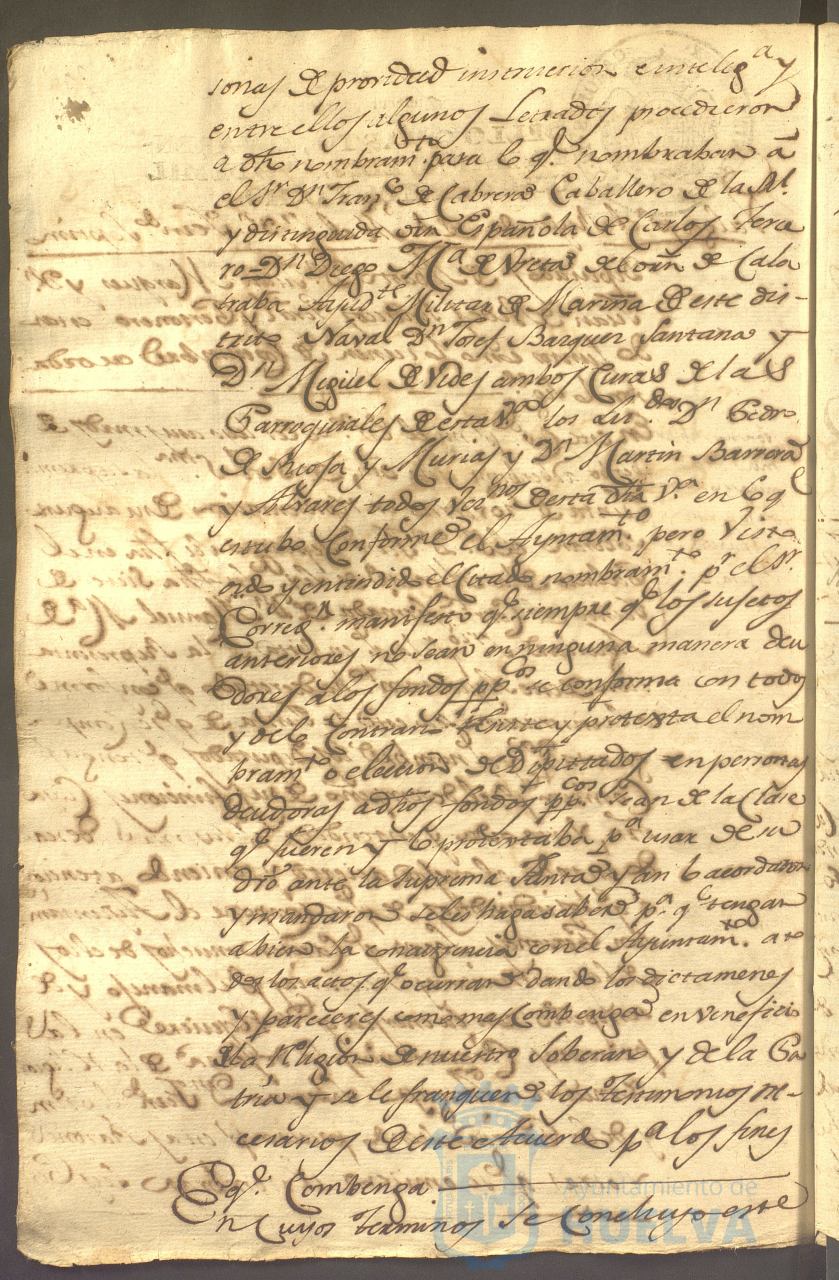 sonas de provided instruccion e intelig.a y
entre ellos algunos Letrados procedieron
a dho nombram.to para lo q.e nombraban á
el S.r D.n Fran.co de Cabrera Caballero de la R.l
y distinguida orñ Española de Carlos Terce
ro D.n Diego M.a de Ureta de la orñ de Cala
traba Ayud.te Militar de Marina de este dis-
trito Naval D.n Josef Barquer Santana y
D.n Miguel de Vides ambos Curas de las
Parroquiales de esta V.a los Lic.dos D.n Pedro
de Riosa y Murias y D.n Martin Barrera
y Alvares todos vec.nos desta dha V.a en lo q
estubo conforme el Ayuntam.to pero visto
oido y entindido el citado nombram.to p.r el S.r
Correg.r manifesto q.e siempre q.e los sujetos
anteriores no sean en ninguna manera deu
dores a los fondos pp.cos se conforma con todos
y de lo contrario y protexta el nom
bram.to o eleccion de Diputados en personas
deudoras a dhos fondos pp.cos sean de la clase
q.e fueren y lo protextaba p.a usar de su
dro ante la suprema Junta y asi lo acordaron
y mandaron se les haga saber p.a q.e tengan
abien la concurrencia con el Ayuntam.to a to
dos los actos q.e ocurran dando los dictamenes
y pareceres como mas combenga en veneficio
de la Religion de nuestro Soberano y de la Pa
tria y se le franqueen los testimonios ne-
cesarios de este Acuerdo p.a los fines
q.e Combenga
En cuyos terminos se concluyo este
Ayuntamiento de
HUELVA